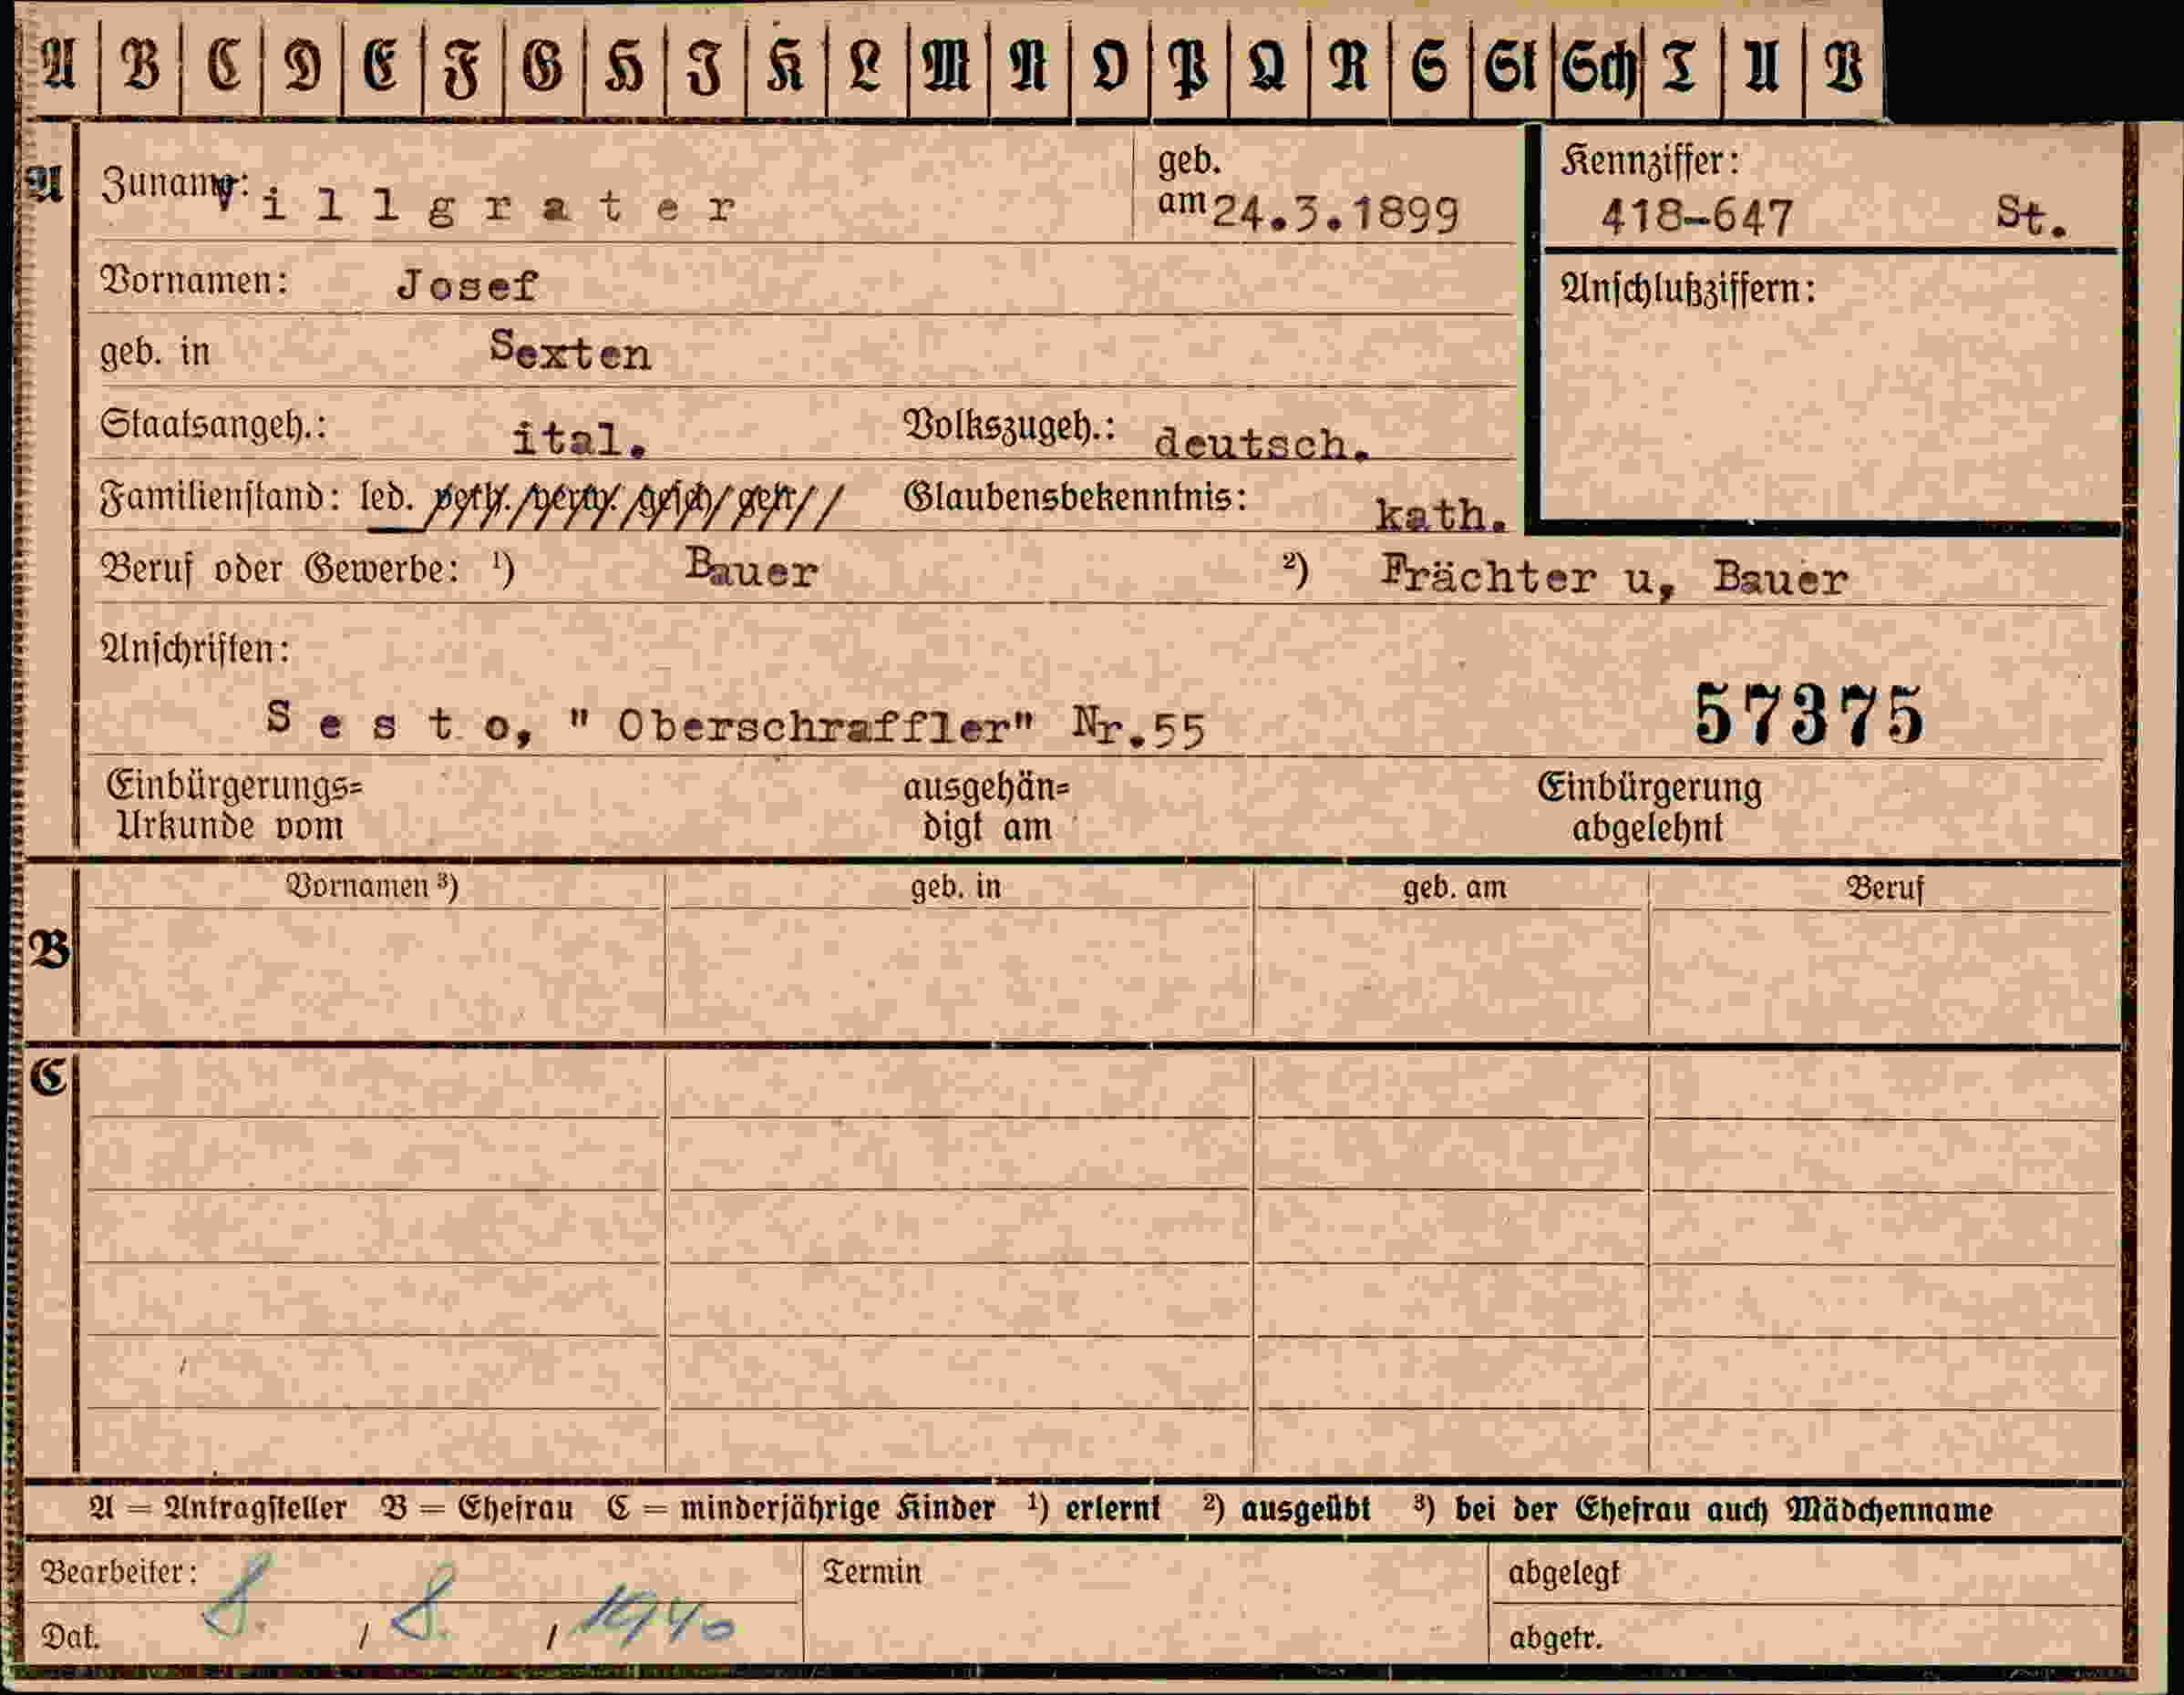 A B C D E F G H I K L M N O P Q R S St Sch T U V
A
Zuname: Villgrater
geb. am 24.3.1899
Kennziffer:
418-647 St.
Vornamen: Josef
Anschlußziffern:
geb. in Sexten
Staatsangeh.: ital. Volkszugeh.: deutsch.
Familienstand: led. verh./verw./gesch/getr// Glaubensbekenntnis: kath.
Beruf oder Gewerbe: ¹) Bauer ²) Frächter u, Bauer
Anschriften:
Sesto, " Oberschraffler" Nr.55 57375
Einbürgerungs= ausgehän= Einbürgerung
Urkunde vom digt am abgelehnt
Vornamen ³) geb. in geb. am Beruf
B
C
A = Antragsteller B = Ehefrau C = minderjährige Kinder ¹) erlernt ²) ausgeübt ³) bei der Ehefrau auch Mädchenname
Bearbeiter: Termin abgelegt
Dat. 8. / 8. / 1940 abgetr.